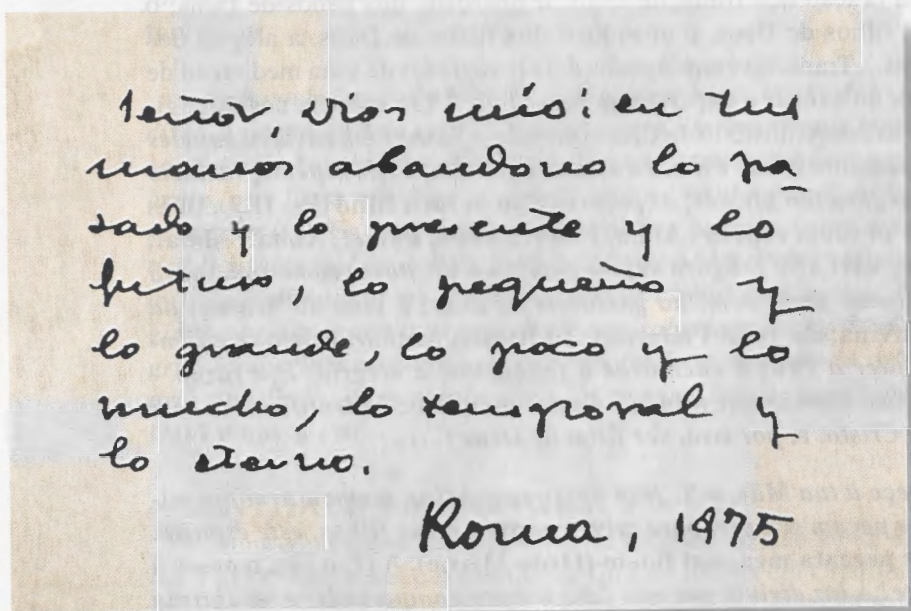 Señor, Dios mío: en tus
manos abandono lo pa-
sado y lo presente y lo
futuro, lo pequeño y
lo grande, lo poco y lo
mucho, lo temporal y
lo eterno.
Roma, 1975